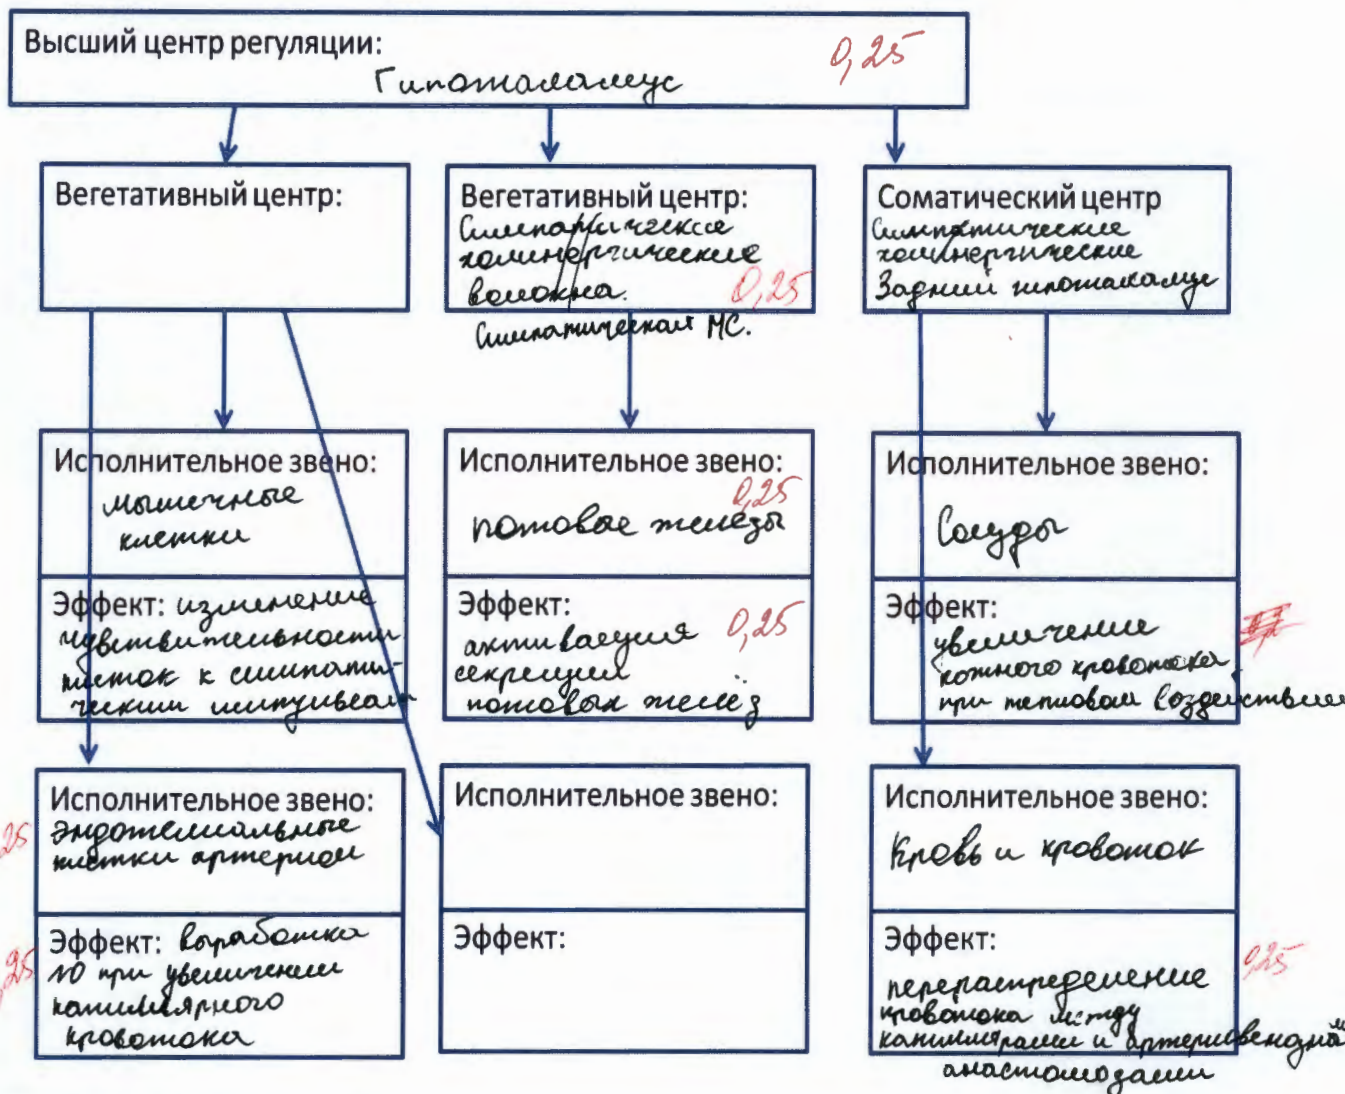 Высший центр регуляции:
0,25
Гипоталамус
Вегетативный центр:
Вегетативный центр:
Симпатические
холинергические
волокна.
0,25
Симпатическая НС.
Соматический центр
Симпатические
холинергические
Задний гипоталамус
Исполнительное звено:
мышечные
клетки
Эффект: изменение
чувствительности
клеток к симпати-
ческим импульсам
Исполнительное звено:
0,25
потовые железы
Эффект:
0,25
активация
секреции
потовых желёз
Исполнительное звено:
Сосуды
Эффект:
увеличение
кожного кровотока
при тепловом воздействии
Исполнительное звено:
25
Эндотелиальные
клетки артериол
Эффект: выработка
,25
NO при увеличении
капиллярного
кровотока
Исполнительное звено:
Эффект:
Исполнительное звено:
Кровь и кровоток
Эффект:
0,25
перераспределение
кровотока между
капиллярами и артериовенозными
анастомозами